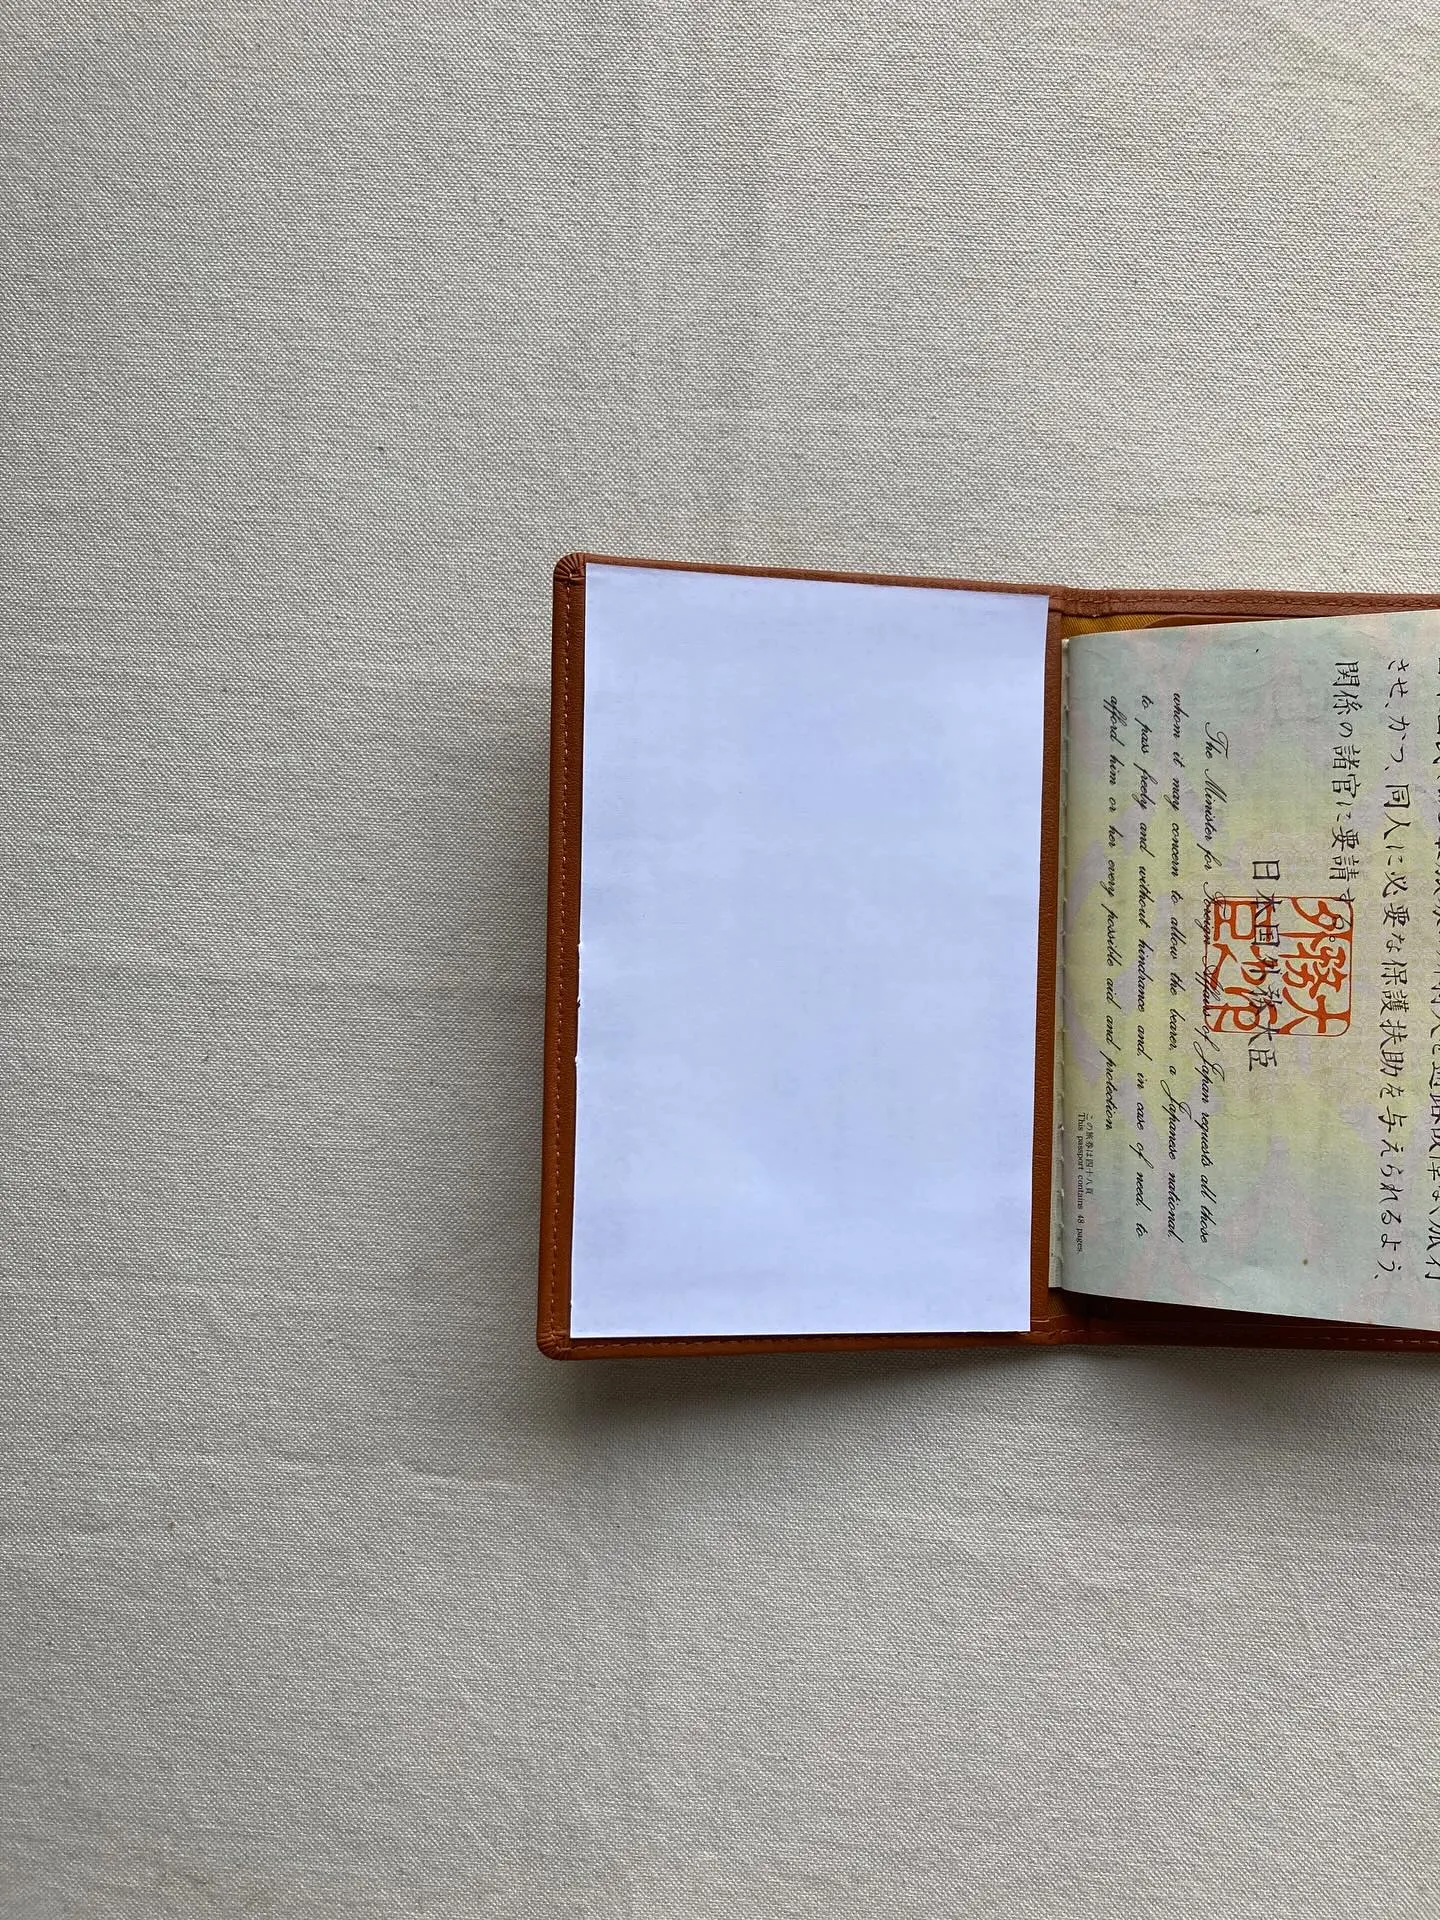 させ、かつ、同人に必要な保護扶助を与えられるよう、
関係の諸官に要請する。
日本国外務大臣
外務大
臣之印
The Minister for Foreign Affairs of Japan requests all those
whom it may concern to allow the bearer, a Japanese national,
to pass freely and without hindrance and, in case of need, to
afford him or her every possible aid and protection.
この旅券は四十八頁
This passport contains 48 pages.